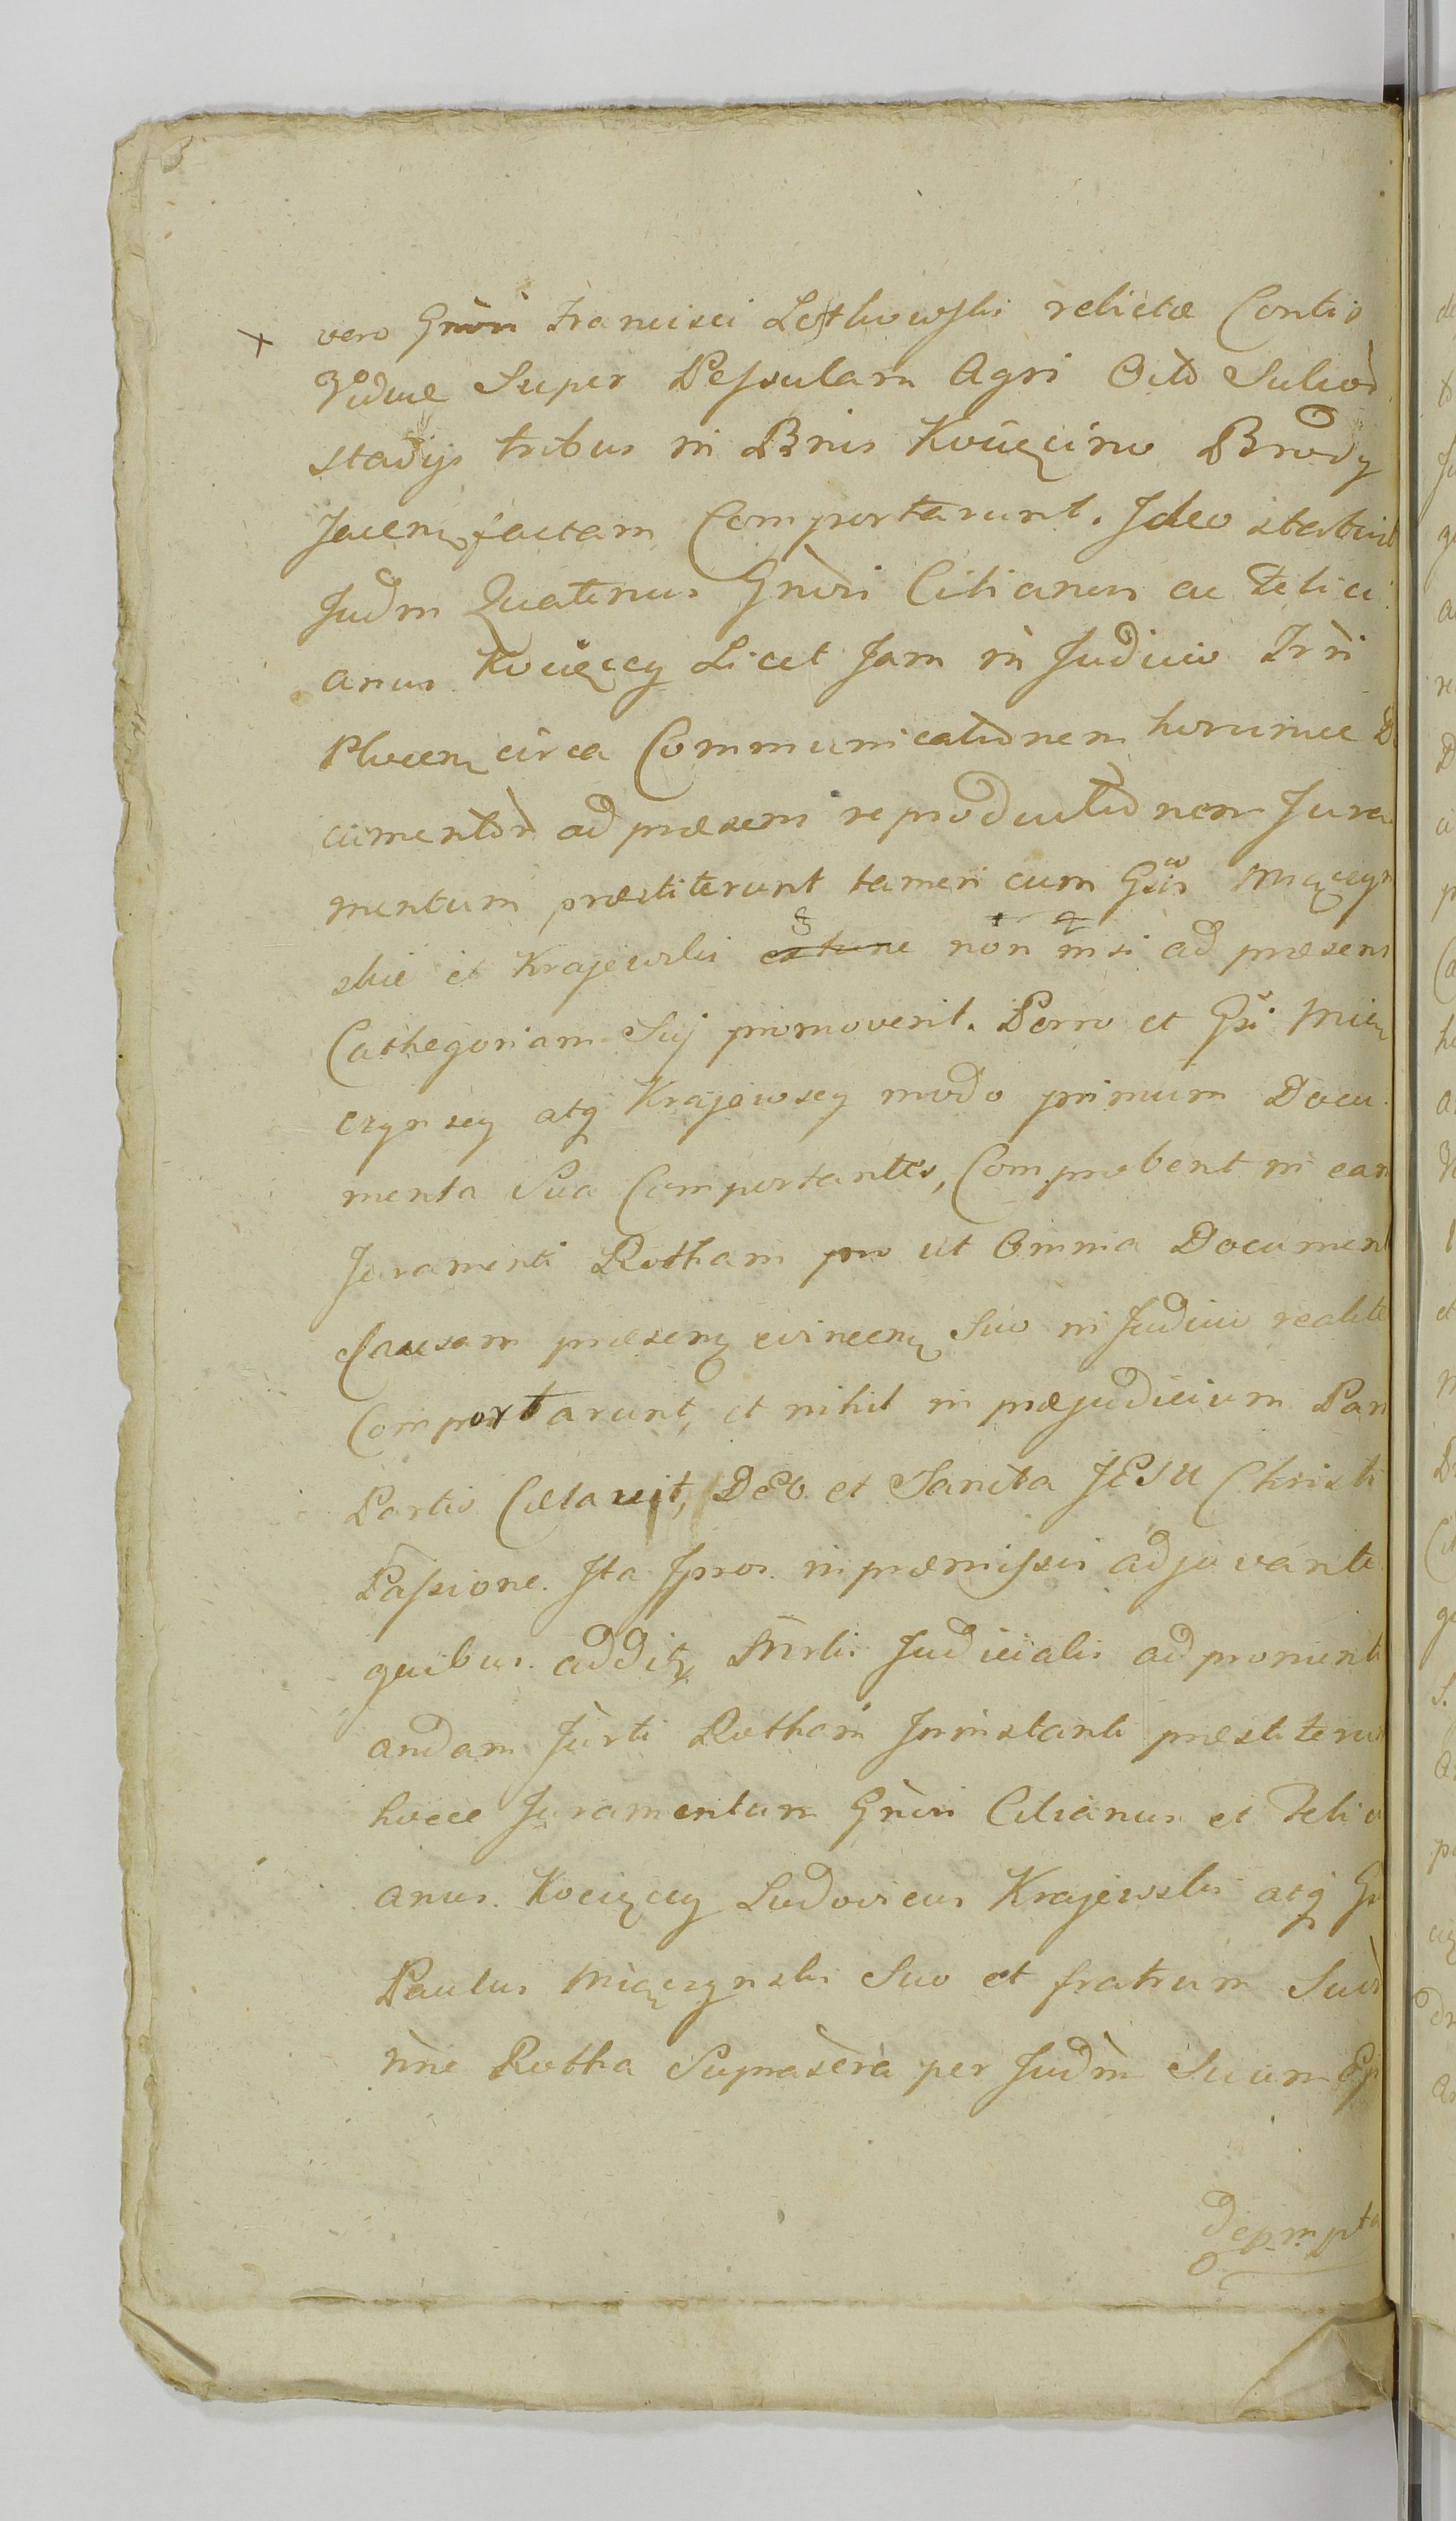 vero Gnosi Francisci Lestkowski relictæ Contis
Viduæ Super Pessulam Agri Octo Sulcor
stadijs tribus in Bnis Kocięcino Brody
Jacen factam Comportarunt. Ideo statuit
Judm Quatenus Gnosi Cilianus ac Felici
anus Kocięccy Licet Jam in Judicio Trri
Plocen circa Communicationem horumce D
cumentor ad præsens reproductionem Jura
mentum præstiterunt tamen cum Gsis Miączyn
skie et Krajewski non nisi ad præsens
Cathegoriam Sij promoverit. Porro et Gsi Mią
czynscy atq Krajewscy modo primum Docu
menta Sua Comportantes, Comprobent in eam
Juramenti Rotham pro ut Omnia Document
Causam præsen evincen Suo in Judicio realite
Comportarunt, et nihil in præjudicium Par
Partis Celavit, DEO et Sancta JESU Christi
Passione. Ita Ipsos in præmissis adjuvante
quibus addit Mrlis Judicialis ad pronunti
andam Jurti Rotham Ininstanti præstiteru
hocce Juramentum Gnosi Cilianus et Felici
anus Kocięccy Ludovicus Krajewski atq G
Paulus Miączynski Suo et fratrum Suor
nne Rotha Suprascra per Judm Suum
depmpta